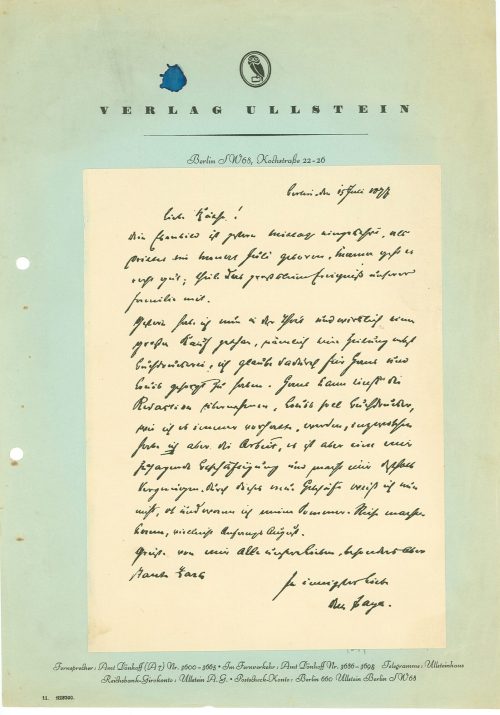 VERLAG ULLSTEIN
Berlin SW68, Kochstraße 22-26
Berlin, den 15 Juli 1877
Liebe Käthe!
Dein Ebenbild ist gestern Mittag eingekehrt, als
im Monat Juli geboren, Mama geht es
recht gut; theile das große kleine Ereigniß unserer
Familie mit.
Gestern habe ich nun in der That und wirklich einen
großen Kauf gethan, nämlich eine Zeitung nebst
Buchdruckerei, ich glaube dadurch für Hans und
Louis gesorgt zu haben. Hans kann einst die
Redaction übernehmen, Louis soll Buchdrucker,
wie ich es immer vorhatte, werden, inzwischen
habe ich aber die Arbeit, es ist aber eine mir
zusagende Beschäftigung und macht mir deshalb
Vergnügen. Durch dieses neue Geschäft weiß ich nun
nicht, ob und wann ich meine Sommer-Reise machen
kann, vielleicht Anfangs August.
Grüße von mir alle unsere Lieben, besonders aber
Tante
In innigster Liebe
Dein Papa.
Fernsprecher: Amt Dönhoff (A7) Nr. 3600-3665 • Im Fernverkehr: Amt Dönhoff Nr. 3686-3698 Telegramme: Ullsteinhaus
Reichsbank-Girokonto: Ullstein A.G. • Postscheck-Konto: Berlin 660 Ullstein Berlin SW68